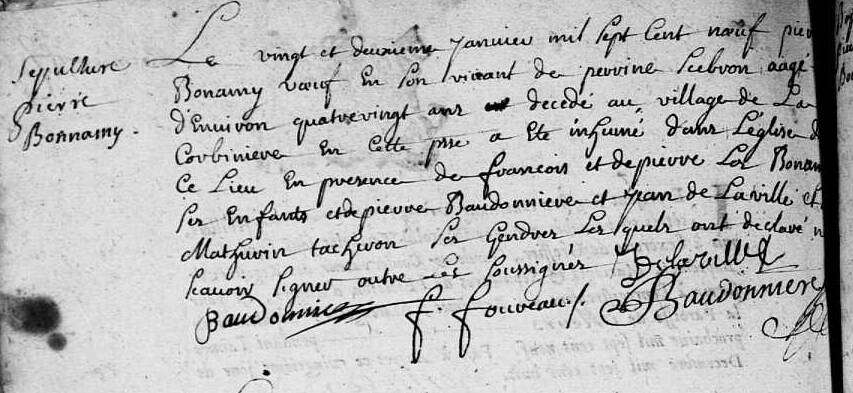 Sepulture
pierre
Bonnamy.
Le vingt et deuxieme Janvier mil sept Cent nœuf pier
Bonamy vœuf En son vivant de perrine aagé
d'Environ quatrevingt ans decedé au village de La
Corbiniere En cette psse a Eté inhumé dans L'église d
Ce Lieu En presence de francois et de pierre Les Bonam
Ses Enfants et de pierre Baudonniere et Jean de Laville et
Mathurin tacheron Ses Gendres Les quels ont declaré n
scavoir signer outre Les soussignés Delaville
Baudonnie f. fouveau Baudonniere